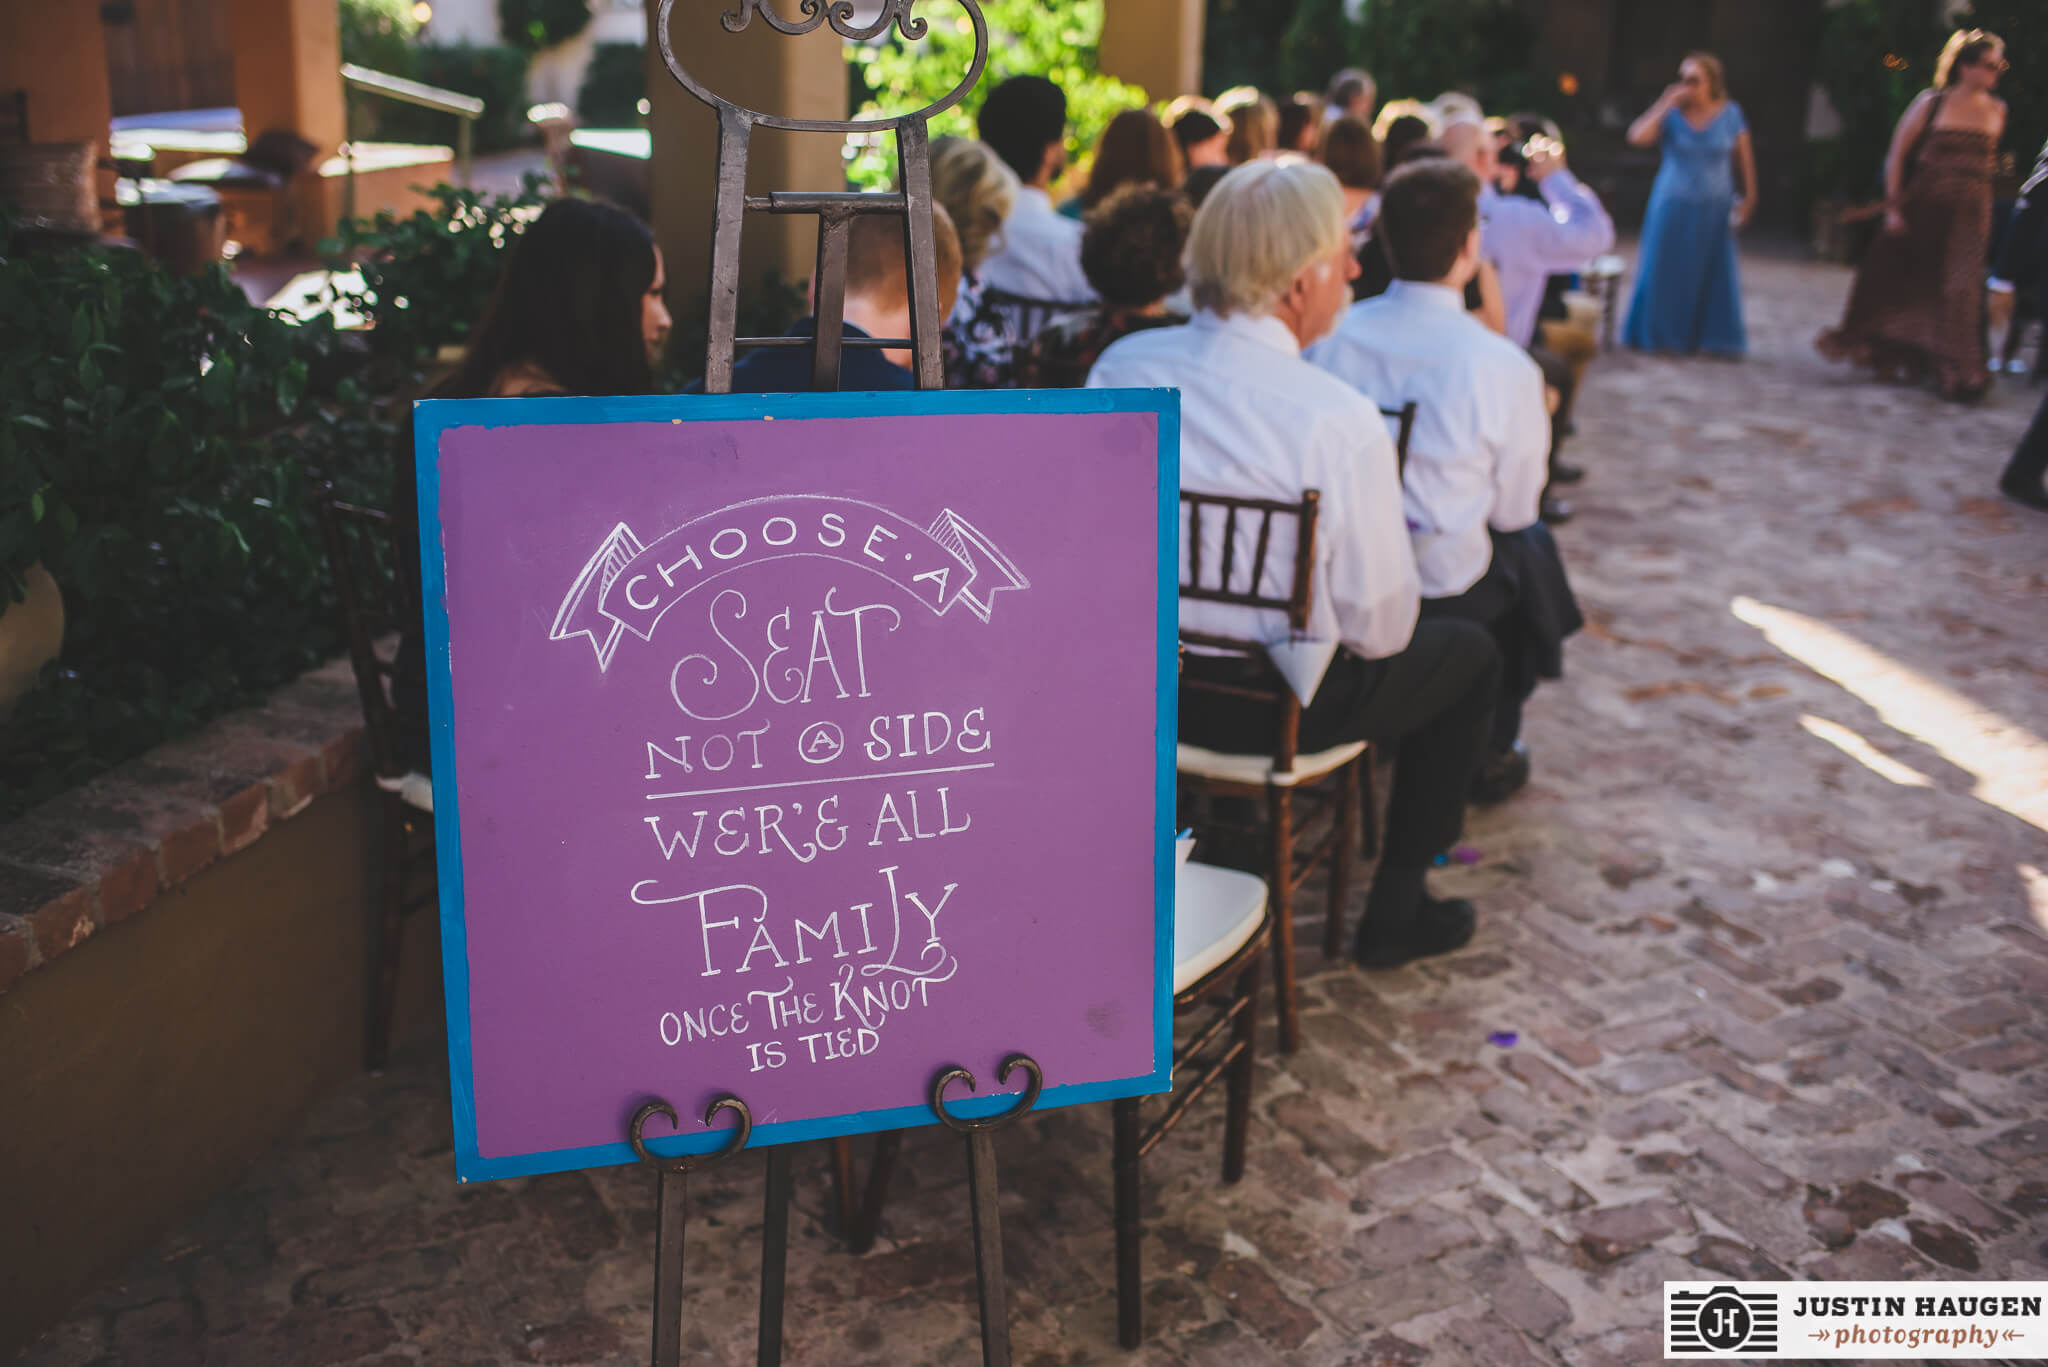 CHOOSE · A
SEAT
NOT A SIDE
WER'E ALL
FAMILY
ONCE THE KNOT
IS TIED
JH
JUSTIN HAUGEN
photography